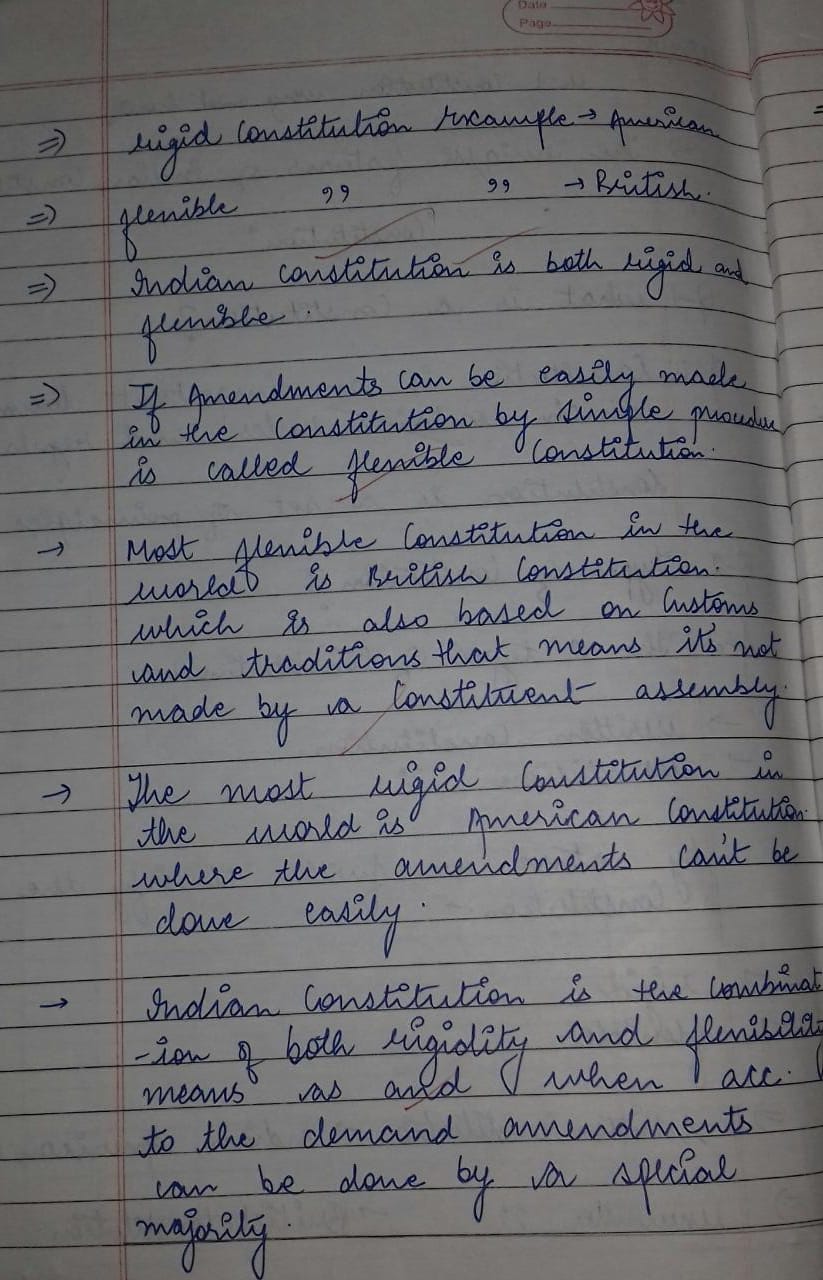 Date
Page
⇒ rigid constitution example → American
⇒ flexible " " → British.
⇒ Indian constitution is both rigid and
flexible.
⇒ If Amendments can be easily made
in the constitution by simple procedure
is called flexible constitution.
→ Most flexible constitution in the
world is British constitution.
which is also based on customs
and traditions that means it's not
made by a constituent assembly.
→ The most rigid constitution in
the world is American constitution.
where the amendments can't be
done easily.
→ Indian constitution is the combinat
-ion of both rigidity and flexibility
means as and when acc.
to the demand amendments
can be done by a special
majority.